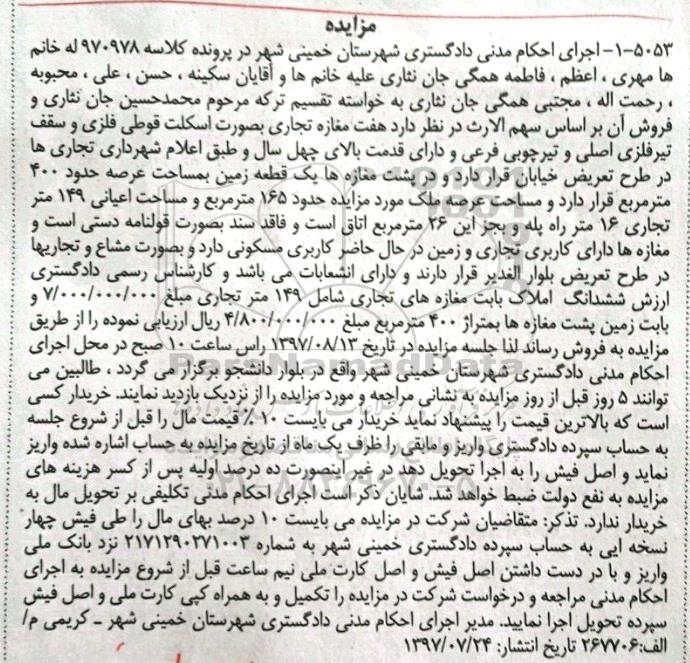 مزایده
۵۰۵۳-۱- اجرای احکام مدنی دادگستری شهرستان خمینی شهر در پرونده کلاسه ۹۷۰۹۷۸ له خانم
ها مهری ، اعظم ، فاطمه همگی جان نثاری علیه خانم ها و آقایان سکینه ، حسن ، علی ، محبوبه
، رحمت اله ، مجتبی همگی جان نثاری به خواسته تقسیم ترکه مرحوم محمدحسین جان نثاری و
فروش آن بر اساس سهم الارث در نظر دارد هفت مغازه تجاری بصورت اسکلت قوطی فلزی و سقف
تیرفلزی اصلی و تیرچوبی فرعی و دارای قدمت بالای چهل سال و طبق اعلام شهرداری تجاری ها
در طرح تعریض خیابان قرار دارد و در پشت مغازه ها یک قطعه زمین بمساحت عرصه حدود ۴۰۰
مترمربع قرار دارد و مساحت عرصه ملک مورد مزایده حدود ۱۶۵ مترمربع و مساحت اعیانی ۱۴۹ متر
تجاری ۱۶ متر راه پله و بجز این ۲۶ مترمربع اتاق است و فاقد سند بصورت قولنامه دستی است و
مغازه ها دارای کاربری تجاری و زمین در حال حاضر کاربری مسکونی دارد و بصورت مشاع و تجاریها
در طرح تعریض بلوار الغدیر قرار دارند و دارای انشعابات می باشد و کارشناس رسمی دادگستری
ارزش ششدانگ املاک بابت مغازه های تجاری شامل ۱۴۹ متر تجاری مبلغ ۷/۰۰۰/۰۰۰/۰۰۰ و
بابت زمین پشت مغازه ها بمتراژ ۴۰۰ مترمربع مبلغ ۴/۸۰۰/۰۰۰/۰۰۰ ریال ارزیابی نموده را از طریق
مزایده به فروش رساند لذا جلسه مزایده در تاریخ ۱۳۹۷/۰۸/۱۳ راس ساعت ۱۰ صبح در محل اجرای
احکام مدنی دادگستری شهرستان خمینی شهر واقع در بلوار دانشجو برگزار می گردد ، طالبین می
توانند ۵ روز قبل از روز مزایده به نشانی مراجعه و مورد مزایده را از نزدیک بازدید نمایند. خریدار کسی
است که بالاترین قیمت را پیشنهاد نماید خریدار می بایست ۱۰٪ قیمت مال را قبل از شروع جلسه
به حساب سپرده دادگستری واریز و مابقی را ظرف یک ماه از تاریخ مزایده به حساب اشاره شده واریز
نماید و اصل فیش را به اجرا تحویل دهد در غیر اینصورت ده درصد اولیه پس از کسر هزینه های
مزایده به نفع دولت ضبط خواهد شد. شایان ذکر است اجرای احکام مدنی تکلیفی بر تحویل مال به
خریدار ندارد. تذکر: متقاضیان شرکت در مزایده می بایست ۱۰ درصد بهای مال را طی فیش چهار
نسخه ایی به حساب سپرده دادگستری خمینی شهر به شماره ۲۱۷۱۲۹۰۲۷۱۰۰۳ نزد بانک ملی
واریز و با در دست داشتن اصل فیش و اصل کارت ملی نیم ساعت قبل از شروع مزایده به اجرای
احکام مدنی مراجعه و درخواست شرکت در مزایده را تکمیل و به همراه کپی کارت ملی و اصل فیش
سپرده تحویل اجرا نمایید. مدیر اجرای احکام مدنی دادگستری شهرستان خمینی شهر ـ کریمی م/
الف:۲۶۷۷۰۶ تاریخ انتشار: ۱۳۹۷/۰۷/۲۴
ParsNamadData